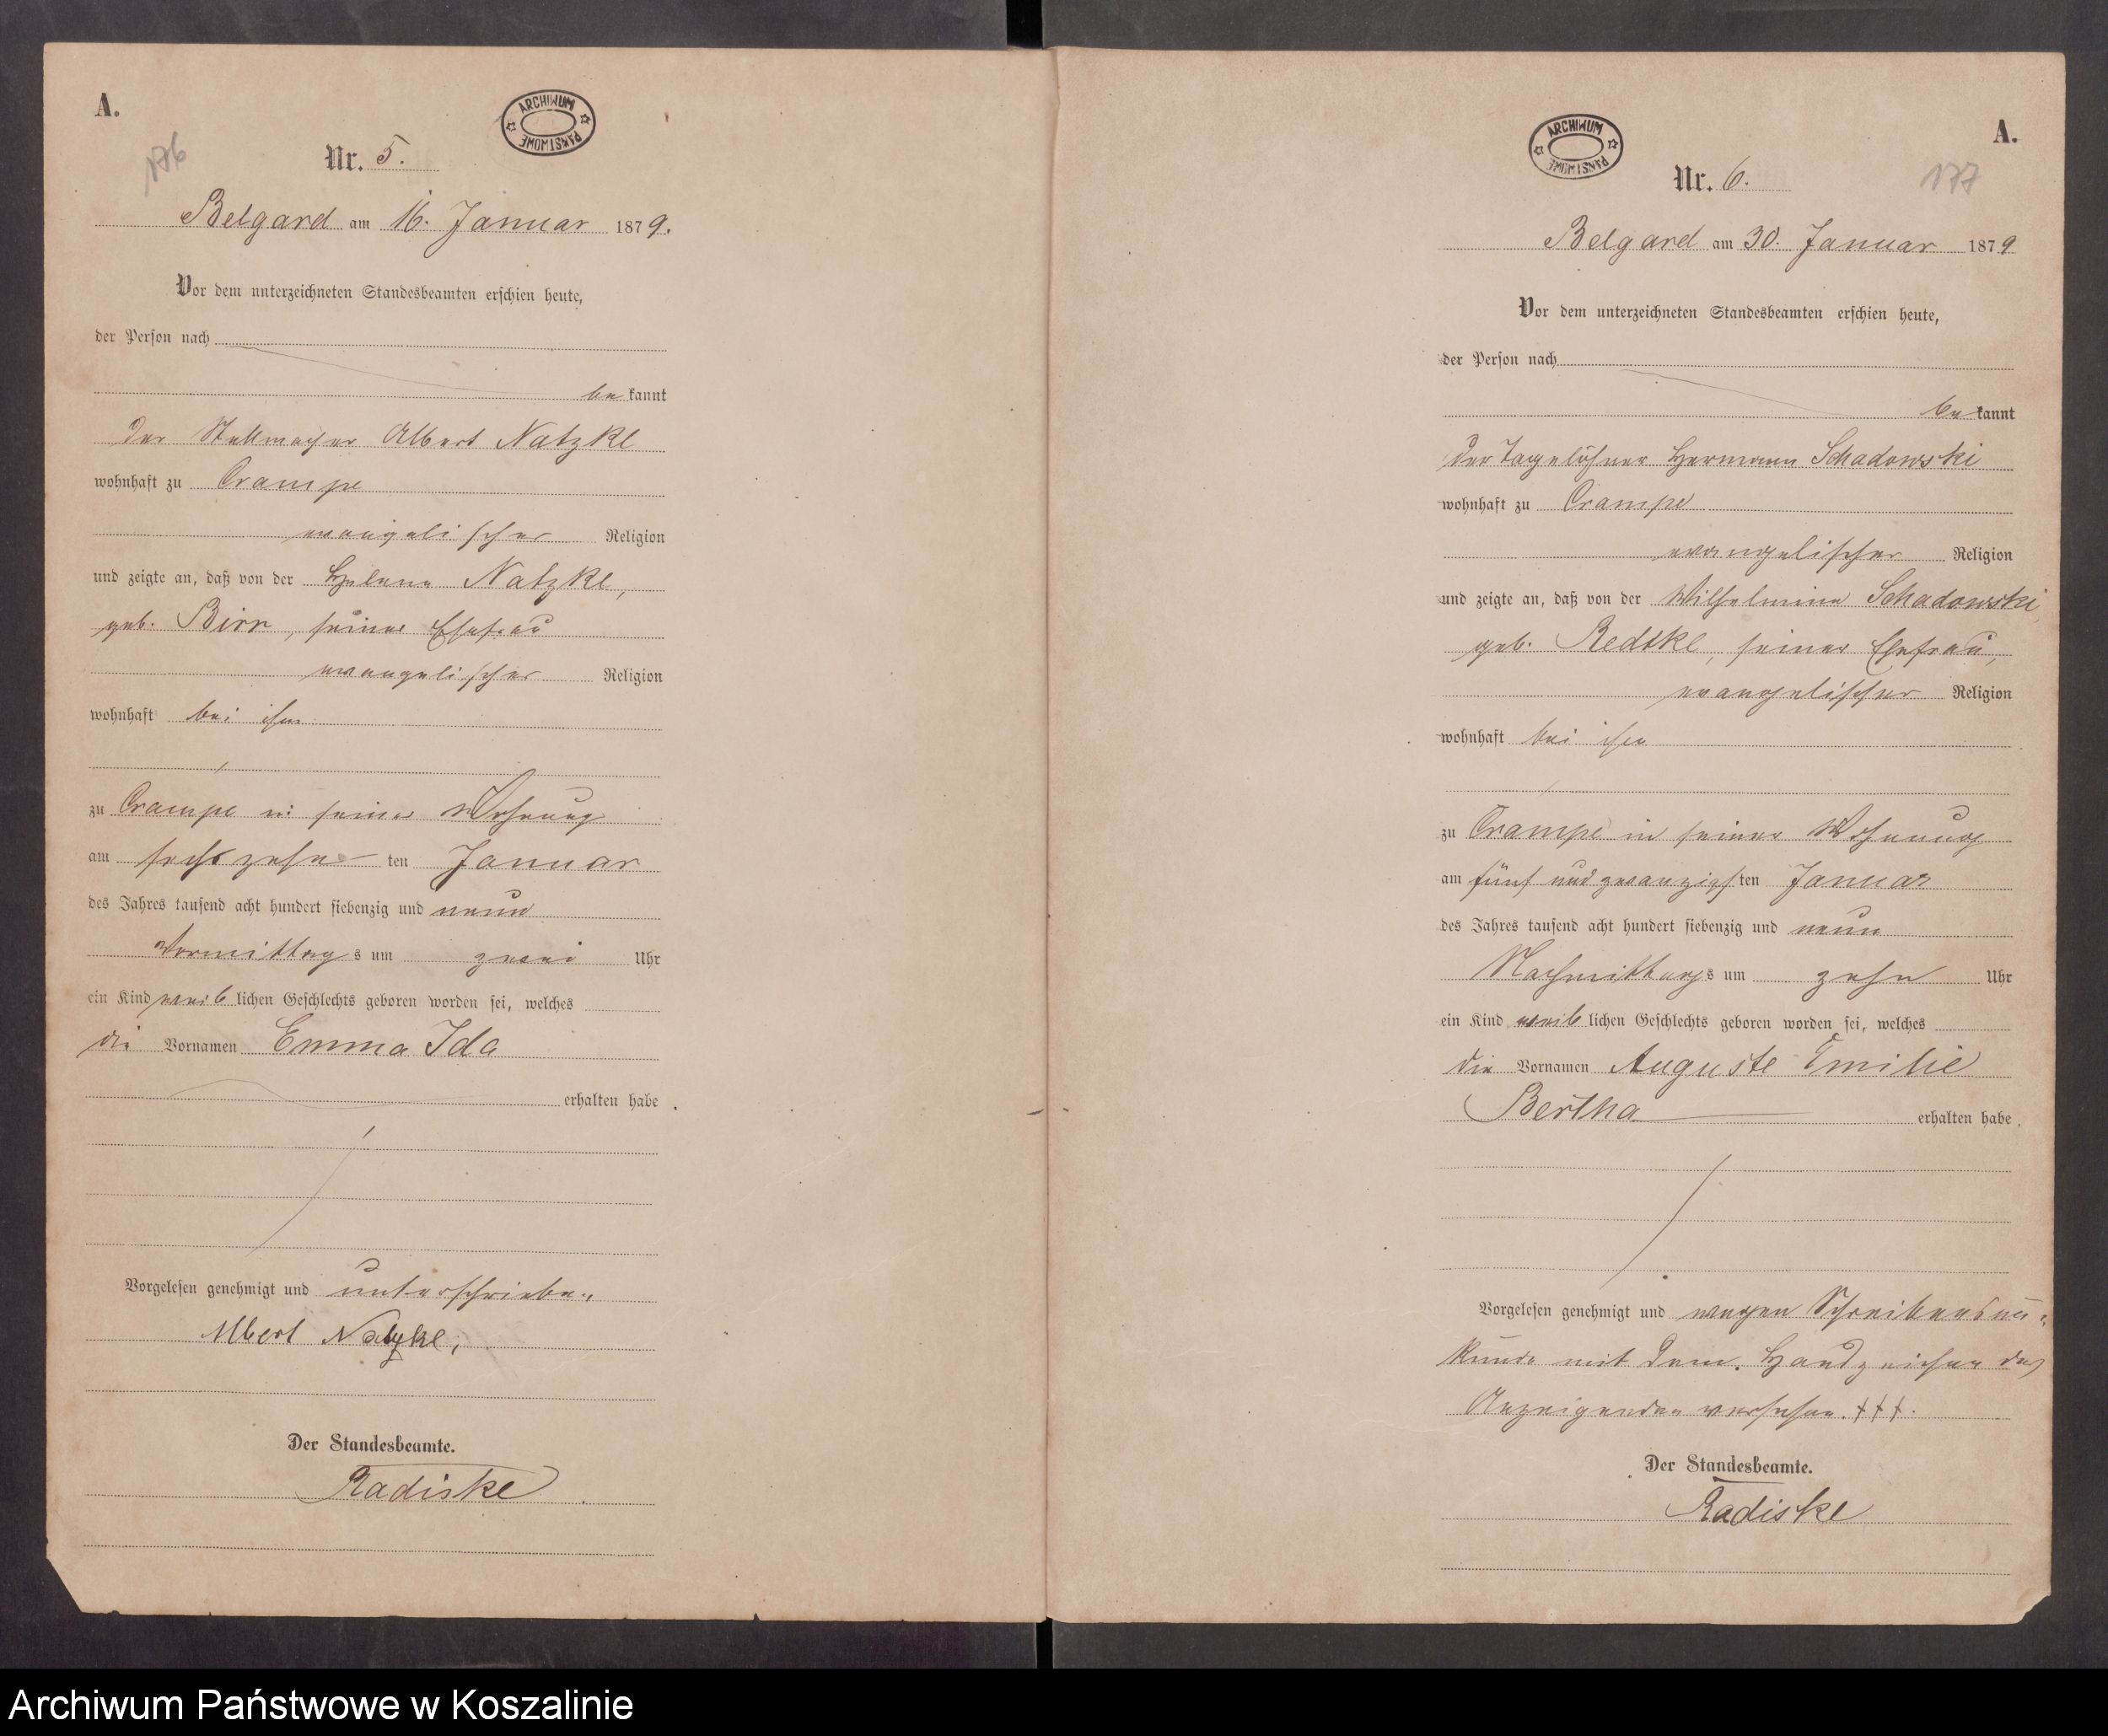 A.
176
ARCHIWUM PAŃSTWOWE
Nr. 5.
Belgard am 16. Januar 1879.
Vor dem unterzeichneten Standesbeamten erschien heute,
der Person nach
bekannt
der Stellmacher Albert Natzke
wohnhaft zu Crampe
evangelischer Religion
und zeigte an, daß von der Helene Natzke,
geb. Birr, seiner Ehefrau
evangelischer Religion
wohnhaft bei ihm
zu Crampe in seiner Wohnung
am sechszehnten Januar
des Jahres tausend acht hundert siebenzig und neun
Vormittags um zwei Uhr
ein Kind weiblichen Geschlechts geboren worden sei, welches
die Vornamen Emma Ida
erhalten habe.
Vorgelesen genehmigt und unterschrieben.
Albert Natzke,
Der Standesbeamte.
Radiske
A.
177
ARCHIWUM PAŃSTWOWE
Nr. 6.
Belgard am 30. Januar 1879
Vor dem unterzeichneten Standesbeamten erschien heute,
der Person nach
bekannt
der Tagelöhner Hermann Schadowski
wohnhaft zu Crampe
evangelischer Religion
und zeigte an, daß von der Wilhelmine Schadowski
geb. Redtke, seiner Ehefrau,
evangelischer Religion
wohnhaft bei ihm
zu Crampe in seiner Wohnung
am fünf und zwanzigsten Januar
des Jahres tausend acht hundert siebenzig und neun
Nachmittags um zehn Uhr
ein Kind weiblichen Geschlechts geboren worden sei, welches
die Vornamen Auguste Emilie
Bertha erhalten habe.
Vorgelesen genehmigt und wegen Schreibensun-
kunde mit dem Handzeichen des
Anzeigenden versehen. +++.
Der Standesbeamte.
Radiske
Archiwum Państwowe w Koszalinie